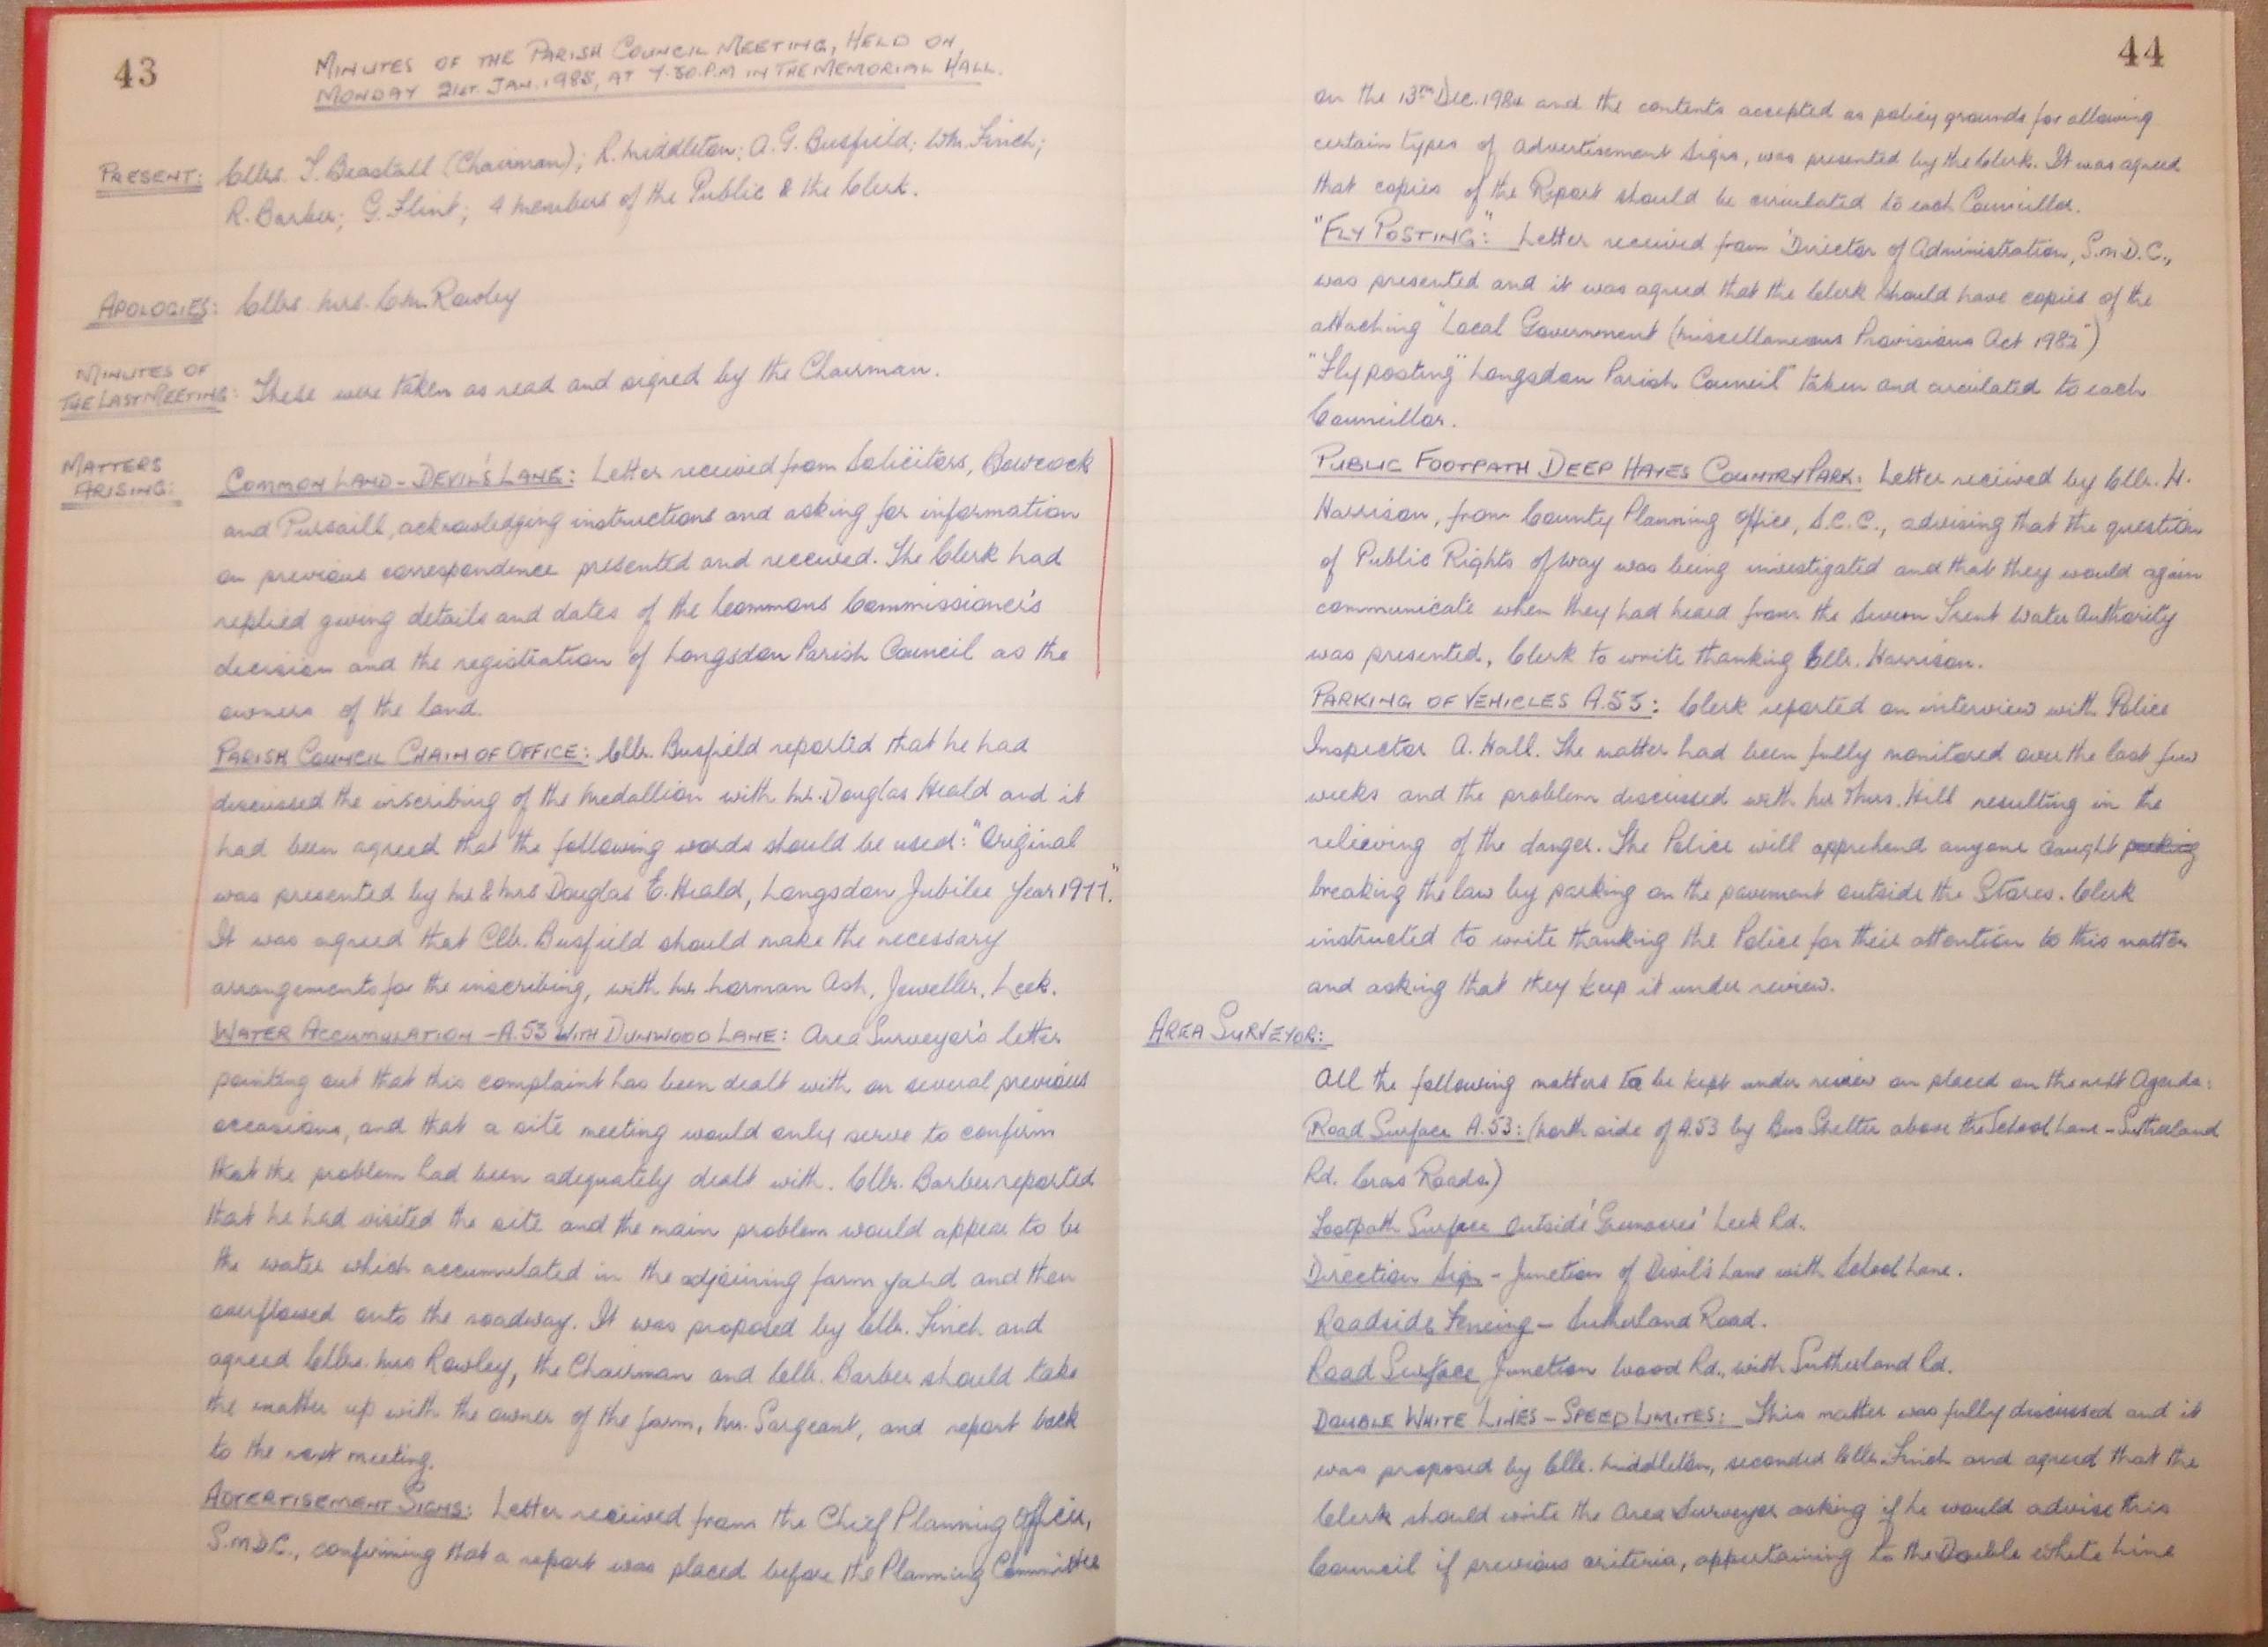 43
MINUTES OF THE PARISH COUNCIL MEETING, HELD ON
MONDAY 21ST. JAN. 1985, AT 7.30.P.M IN THE MEMORIAL HALL.
PRESENT: Cllrs. T. Beastall (Chairman); R. Middleton; A.G. Busfield; Wm. Finch;
R. Barber; G. Flint; 4 members of the Public & the Clerk.
APOLOGIES: Cllrs. Mrs. C.M. Rowley
MINUTES OF
THE LAST MEETING: These were taken as read and signed by the Chairman.
MATTERS
ARISING:
COMMON LAND - DEVIL'S LANE: Letter received from Solicitors, Bowcock
and Pursaill, acknowledging instructions and asking for information
on previous correspondence presented and received. The Clerk had
replied giving details and dates of the Commons Commissioner's
decision and the registration of Longsdon Parish Council as the
owners of the land.
PARISH COUNCIL CHAIN OF OFFICE: Cllr. Busfield reported that he had
discussed the inscribing of the Medallion with Mr. Douglas Heald and it
had been agreed that the following words should be used: "Original
was presented by Mr & Mrs Douglas E. Heald, Longsdon Jubilee Year 1977."
It was agreed that Cllr. Busfield should make the necessary
arrangements for the inscribing, with Mr. Norman Ash, Jeweller, Leek.
WATER ACCUMULATION - A.53 WITH DUNWOOD LANE: Area Surveyor's letter
pointing out that this complaint has been dealt with on several previous
occasions, and that a site meeting would only serve to confirm
that the problem had been adequately dealt with. Cllr. Barber reported
that he had visited the site and the main problem would appear to be
the water which accumulated in the adjoining farm yard and then
overflowed onto the roadway. It was proposed by Cllr. Finch and
agreed Cllrs. Mrs Rowley, the Chairman and Cllr. Barber should take
the matter up with the owner of the farm, Mr. Sargeant, and report back
to the next meeting.
ADVERTISEMENT SIGNS: Letter received from the Chief Planning Officer,
S.M.D.C., confirming that a report was placed before the Planning Committee
44
on the 13th Dec. 1984 and the contents accepted as policy grounds for allowing
certain types of Advertisement Signs, was presented by the Clerk. It was agreed
that copies of the Report should be circulated to each Councillor.
"FLY POSTING": Letter received from Director of Administration, S.M.D.C.,
was presented and it was agreed that the Clerk should have copies of the
attaching "Local Government (Miscellaneous Provisions Act 1982")
"Fly posting" Longsdon Parish Council" taken and circulated to each
Councillor.
PUBLIC FOOTPATH DEEP HAYES COUNTRY PARK: Letter received by Cllr. H.
Harrison, from County Planning Office, S.C.C., advising that the question
of Public Rights of way was being investigated and that they would again
communicate when they had heard from the Severn Trent Water Authority
was presented, Clerk to write thanking Cllr. Harrison.
PARKING OF VEHICLES A.53: Clerk reported an interview with Police
Inspector A. Hall. The matter had been fully monitored over the last few
weeks and the problem discussed with Mr Thos. Hill resulting in the
relieving of the danger. The Police will apprehend anyone caught parking
breaking the law by parking on the pavement outside the Stores. Clerk
instructed to write thanking the Police for their attention to this matter
and asking that they keep it under review.
AREA SURVEYOR:
All the following matters to be kept under review on placed on the next Agenda:
Road Surface A.53: (North side of A.53 by Bus Shelter above the School Lane - Sutherland
Rd. Cross Roads)
Footpath Surface Outside Leek Rd.
Direction Sign - Junction of Devil's Lane with School Lane.
Roadside Fencing - Sutherland Road.
Road Surface Junction Wood Rd., with Sutherland Rd.
DOUBLE WHITE LINES - SPEED LIMITES: This matter was fully discussed and it
was proposed by Cllr. Middleton, seconded Cllr. Finch and agreed that the
Clerk should write the Area Surveyor asking if he would advise this
Council if previous criteria, appertaining to the Double White Line